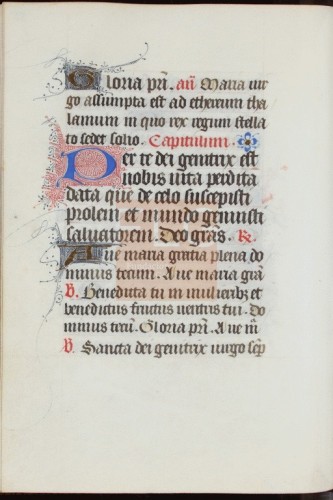 Gloria pri. añ Maria vir
go assumpta est ad ethereum tha
lamum in quo rex regum stella
to sedet solio. Capitulum.
Per te dei genitrix est
nobis uita perdita
data que de celo suscepisti
prolem et mundo genuisti
saluatorem. Deo grãs. R.
Aue maria gratia plena do
minus tecum. Aue maria grã
V. Benedicta tu in mulieribz et
benedictus fructus uentris tui. Do
minus tecũ. Gloria pri. Aue m̃
V. Sancta dei genitrix uirgo sep̃